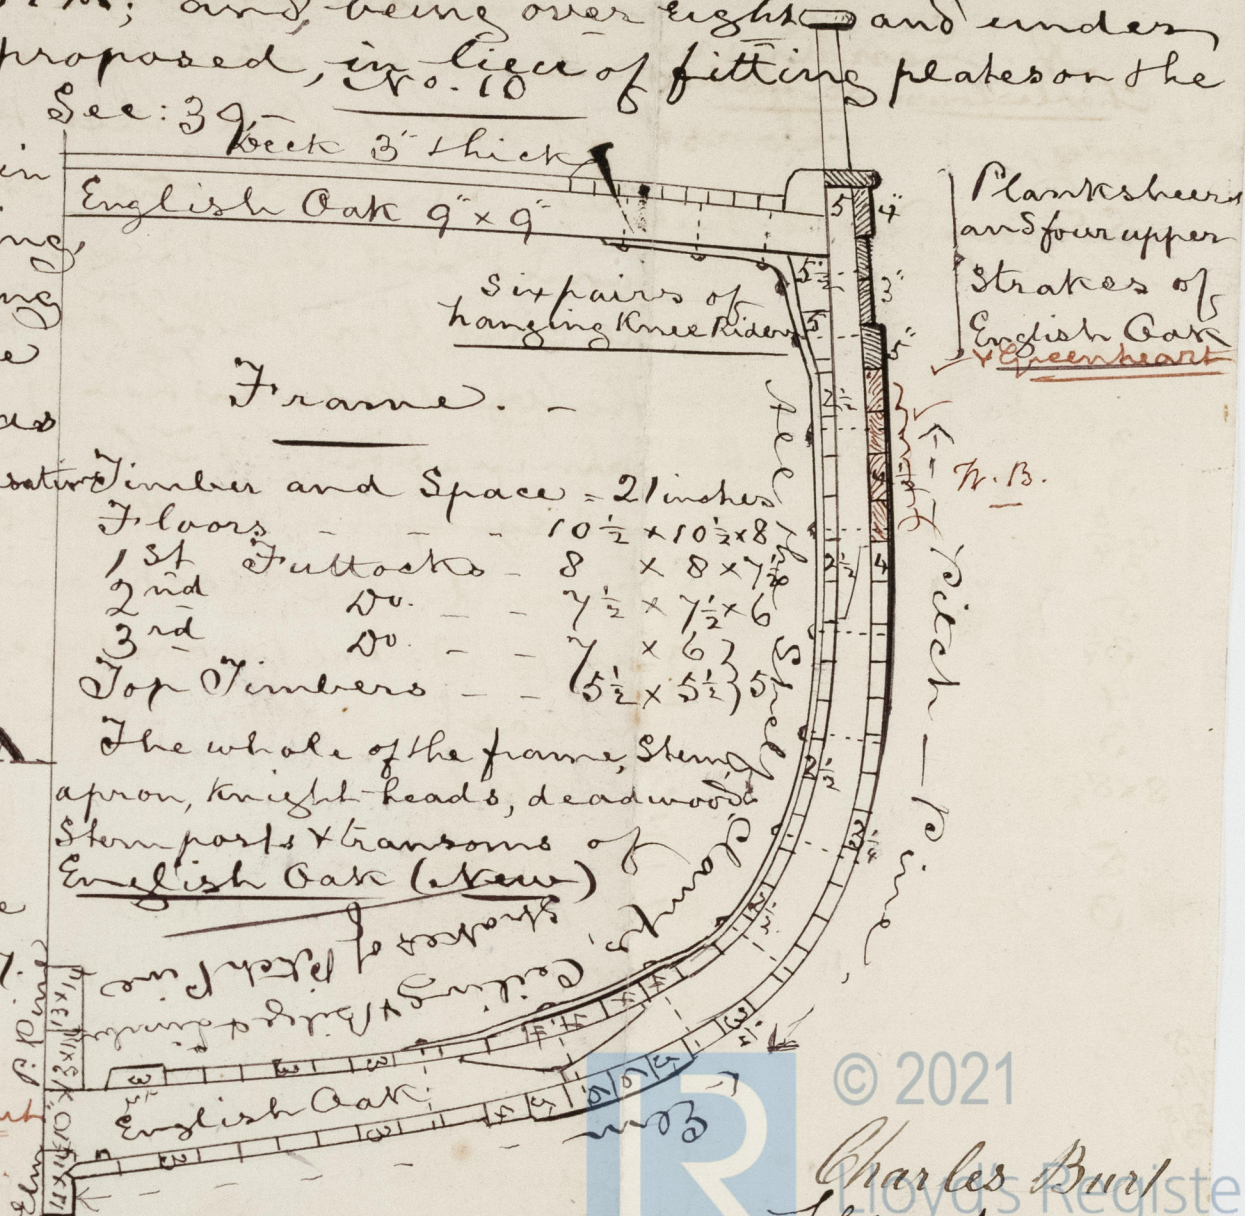 and being over Eight and under
proposed, in lieu of fitting plates on the
No. 10
Sec: 39
Deck 3" thick
English Oak 9" x 9"
5 4"
Planksheers
and four upper
strakes of
English Oak
& Greenheart
5½
3"
5
5"
Six pairs of
hanging Knee Riders
Frame. -
2½
W.B.
Timber and Space = 21 inches
Floors - - - 10½ x 10½ x 8
1st Futtocks - 8 x 8 x 7½
2nd Do. - - 7½ x 7½ x 6
3rd Do. - - 7 x 6 }
Top Timbers - - 5½ x 5½ } 5
2½ 4
The whole of the frame, Stem,
apron, Knight-heads, deadwood
Stern posts & transoms of
English Oak (New)
All the Shelf, Clamps,
Ceiling & Bilge & Limber
Strakes of Pitch Pine
Pitch - Pine
2½
English Oak
Elm
© 2021
Charles Burt
Lloyd's Registe